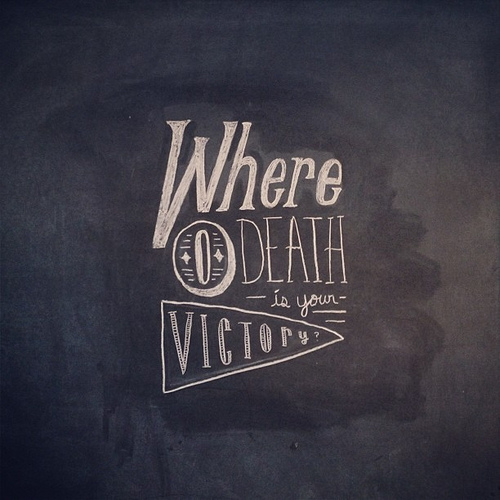 Where
O DEATH
is your
VICTORY?